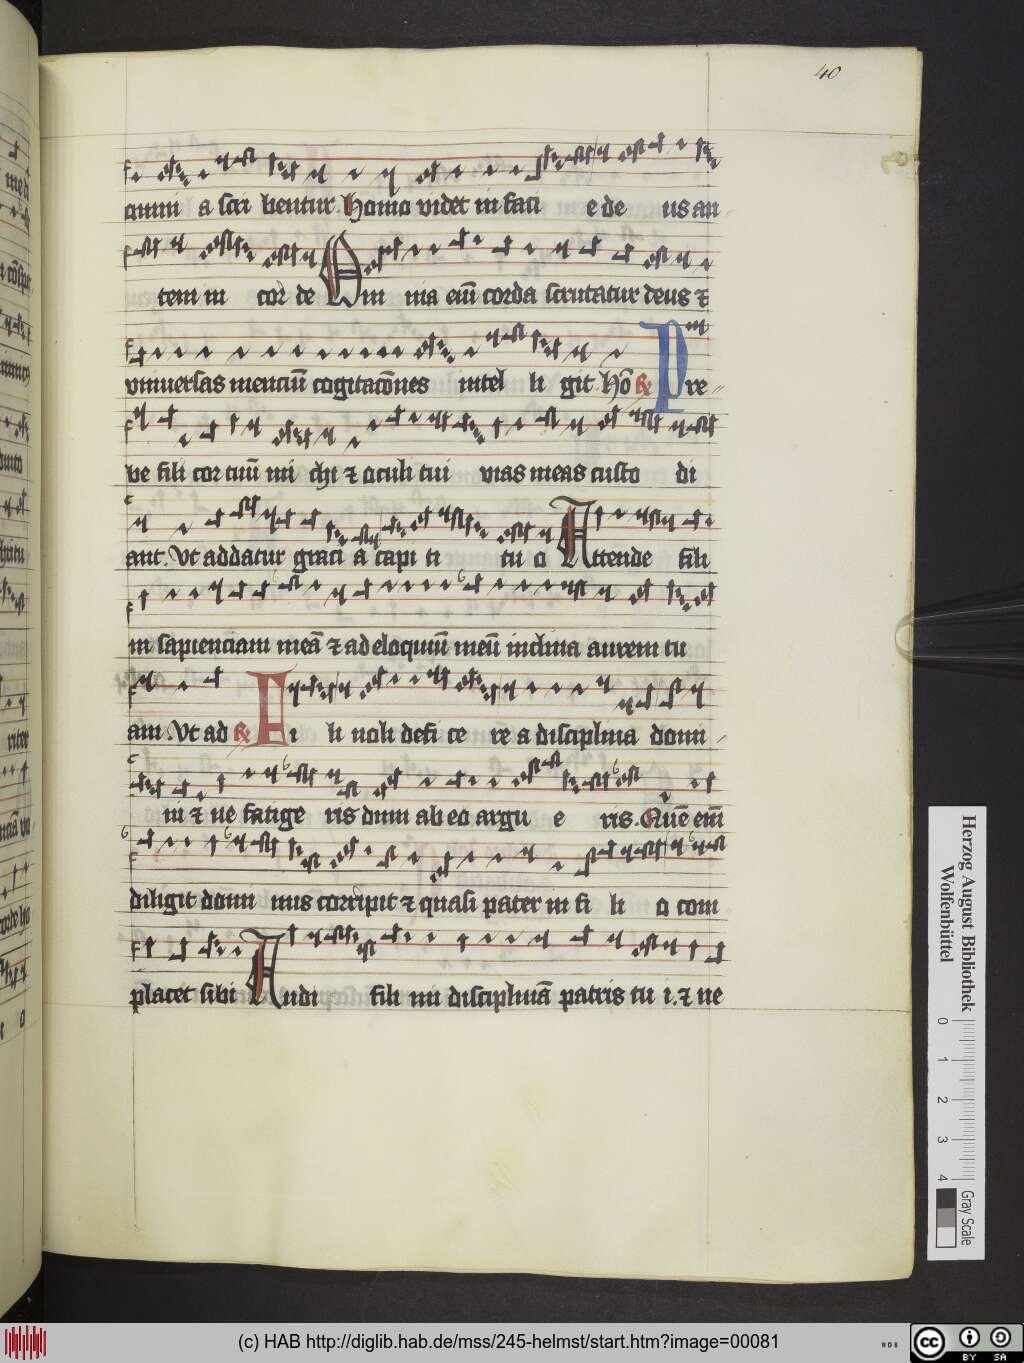 40
quini a scri bentur. Homo videt in faci e de us au
tem in cor de Om nia em̄ corda scrutatur deus ⁊
vniuersas menciū cogitacōnes intel li git. Hō ℟ Pre
be fili cor tuū mi chi ⁊ oculi tui vias meas custo di
ant. Vt addatur graci a capi ti tu o Attende fili
mi sapienciam meā ⁊ ad eloquiū meū inclina aurem tu
am. Vt ad ℟ Fi li noli defi ce re a disciplina domi
ni ⁊ ne fatige ris dum ab eo argu e ris. Quē em̄
diligit domi nus corripit ⁊ quasi pater in fi li o com
placet sibi Audi fili mi disciplinā patris tu i. ⁊ ne
Herzog August Bibliothek
Wolfenbüttel
0 1 2 3 4
Gray Scale
(c) HAB http://diglib.hab.de/mss/245-helmst/start.htm?image=00081
WDB
cc BY SA